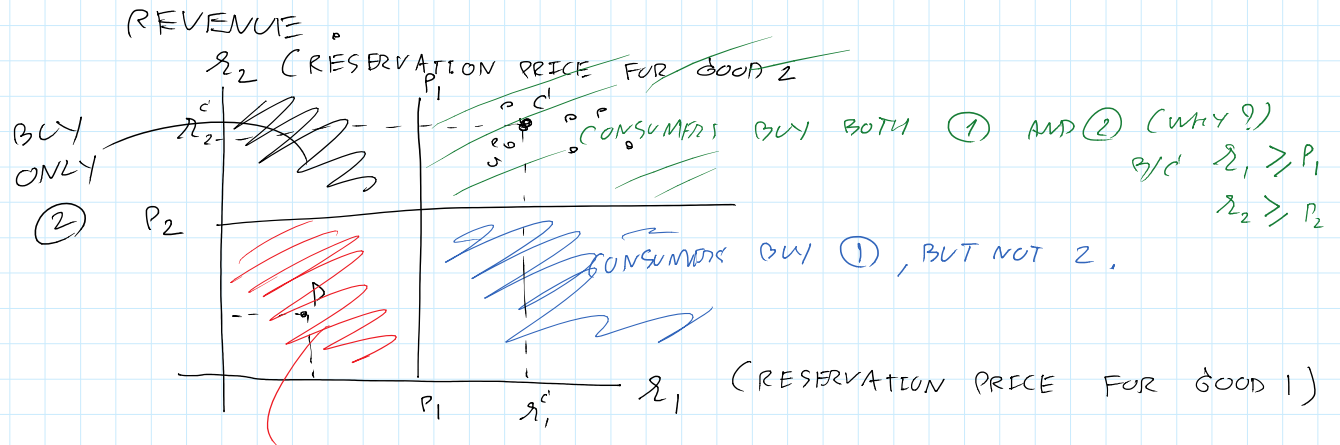 REVENUE
r₂ (RESERVATION PRICE FOR GOOD 2
P₁
C'
r₂ᶜ'
BUY
ONLY
②
CONSUMERS BUY BOTH ① AND ② (WHY?)
B/C r₁ ≥ P₁
r₂ ≥ P₂
P₂
CONSUMERS BUY ①, BUT NOT 2.
D
P₁
r₁ᶜ'
r₁ (RESERVATION PRICE FOR GOOD 1)